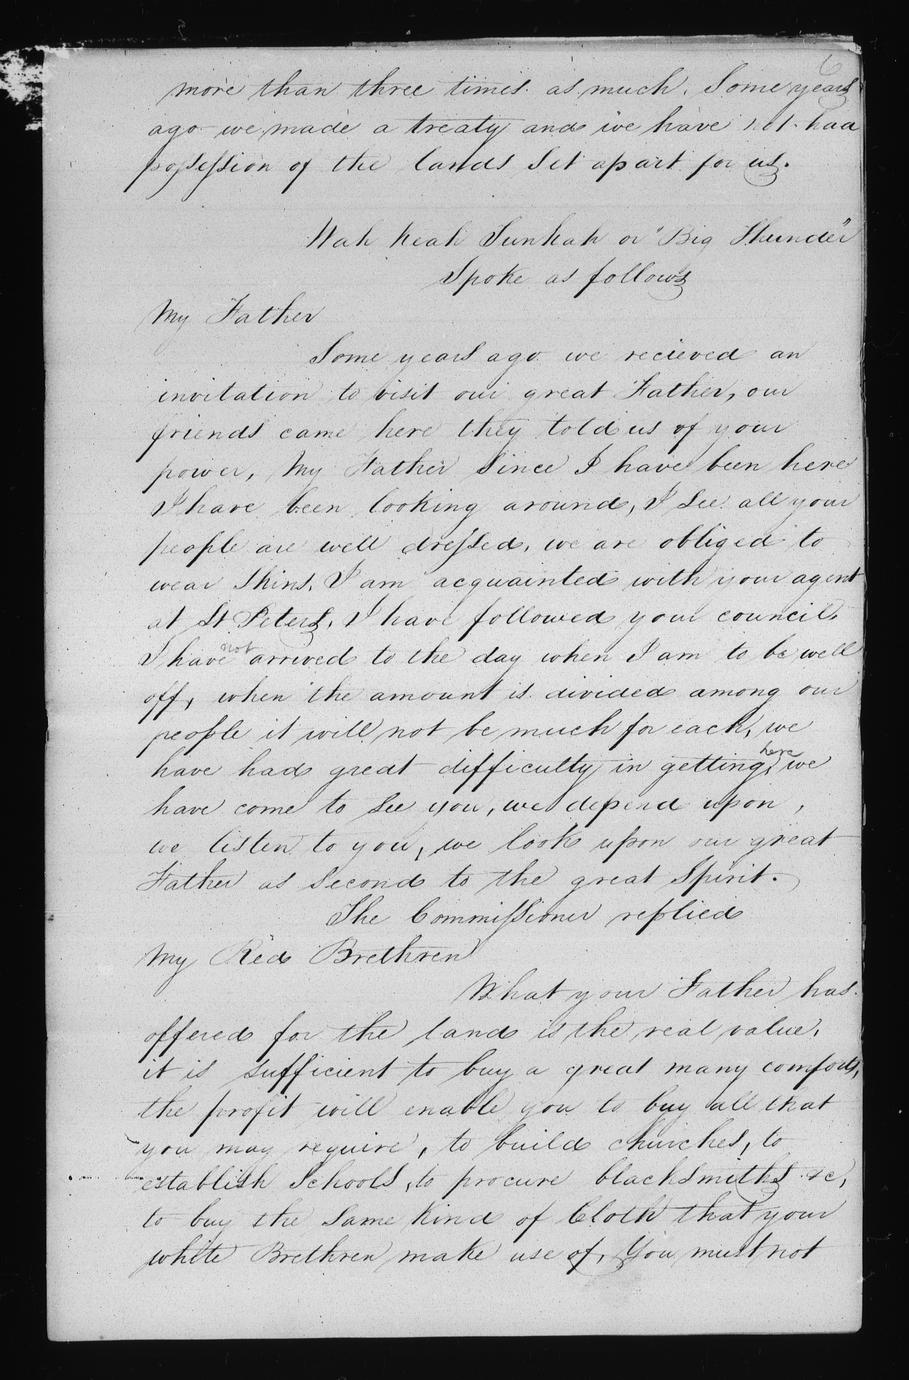 6
more than three times as much. Some years
ago we made a treaty and we have not had
possession of the lands set apart for us.
Wah Keah Sunkah or "Big Thunder"
Spoke as follows
My Father
Some years ago we recieved an
invitation to visit our great Father, our
friends came here they told us of your
power, My Father Since I have been here
I have been looking around, I see all your
people are well dressed, we are obliged to
wear Skins, I am acquainted with your agent
at St Peters, I have followed your council,
I have not arrived to the day when I am to be well
off, when the amount is divided among our
people it will not be much for each, we
have had great difficulty in getting here, we
have come to see you, we depend upon,
we listen to you, we look upon our great
Father as second to the great Spirit.
The Commissioner replied
My Red Brethren
What your Father has
offered for the land is the real value,
it is sufficient to buy a great many comforts,
the profit will enable you to buy all that
you may require, to build churches, to
establish Schools, to procure blacksmiths &c,
to buy the same kind of Cloth that your
white Brethren make use of, You must not